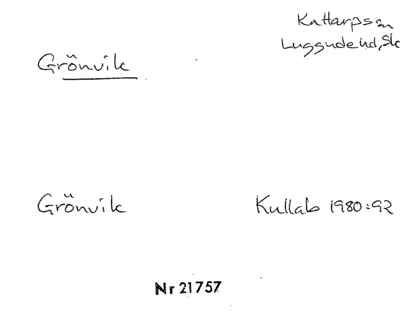 Grönvik
Kattarps sn
Luggude hd, Sk
Grönvik
Kullab 1980:92
Nr 21757